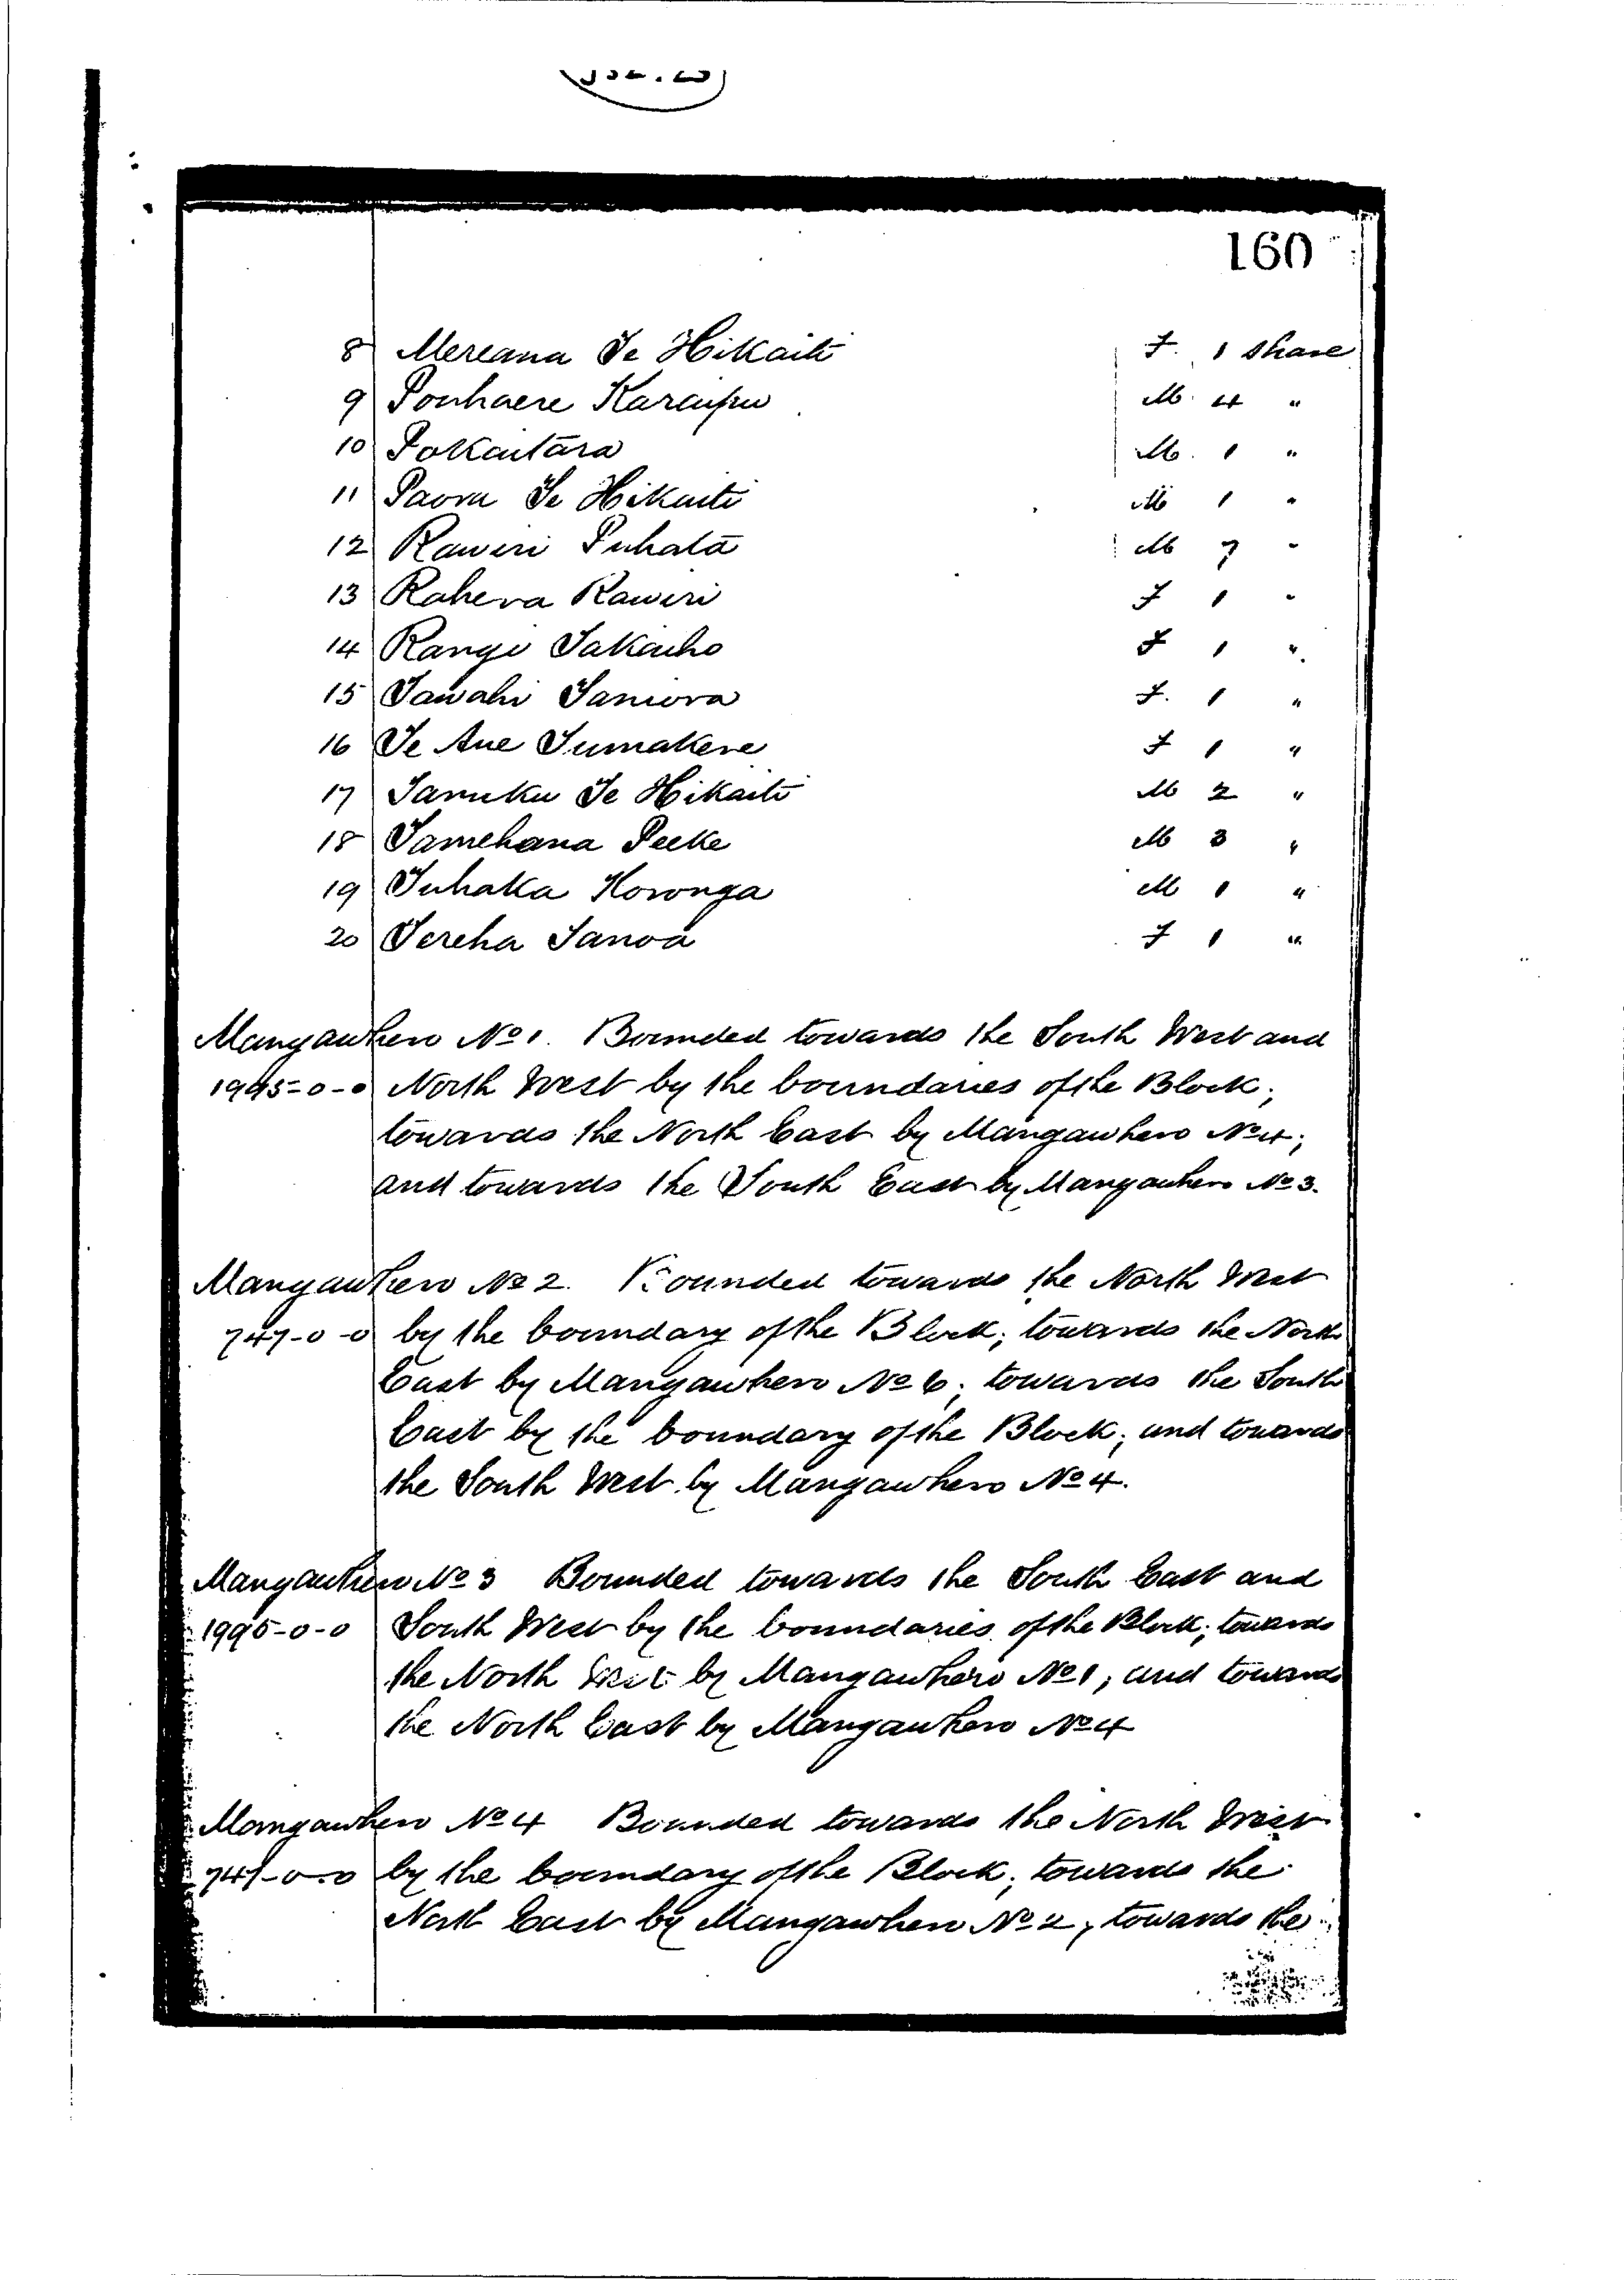 160
8 Mereana Te Hikaiti F. 1 share
9 Pouhaere Karaipu M. 4 "
10 Pokaitara M. 1 "
11 Paora Te Hikaiti M 1 "
12 Raweri Puhata M 7 "
13 Rahera Raweri F 1 "
14 Rangi Takacho F 1 "
15 Tawahi Tamiora F. 1 "
16 Te Aue Tumakere F 1 "
17 Taruku Te Hikaiti M 2 "
18 Tamehana Peeke M 3 "
19 Tuhaka Horonga M 1 "
20 Tereha Tanoa F 1 "
Mangawhero No 1. Bounded towards the South West and
1995-0-0 North West by the boundaries of the Block;
towards the North East by Mangawhero No 4;
and towards the South East by Mangawhero No 3.
Mangawhero No 2. Bounded towards the North West
747-0-0 by the boundary of the Block; towards the North
East by Mangawhero No 6; towards the South
East by the boundary of the Block; and towards
the South West by Mangawhero No 4.
Mangawhero No 3 Bounded towards the South East and
1995-0-0 South West by the boundaries of the Block; towards
the North West by Mangawhero No 1; and towards
the North East by Mangawhero No 4
Mangawhero No 4 Bounded towards the North West
747-0-0 by the boundary of the Block; towards the
North East by Mangawhero No 2; towards the